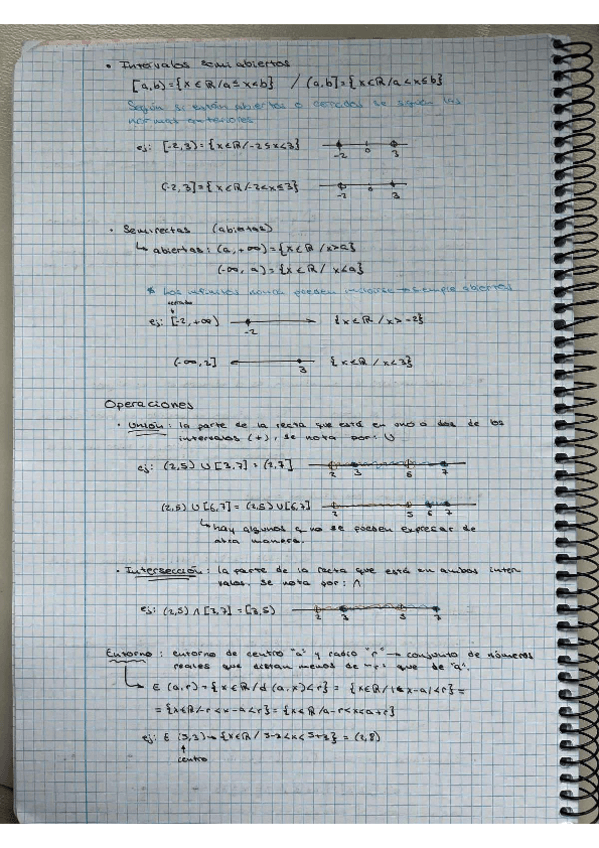 • Intervalos semiabiertos
[a,b) = {x ∈ ℝ / a ≤ x < b} / (a,b] = {x ∈ ℝ / a < x ≤ b}
Según si están abiertos o cerrados se siguen las
normas anteriores
ej: [-2,3) = {x ∈ ℝ / -2 ≤ x < 3}
-2 0 3
(-2,3] = {x ∈ ℝ / -2 < x ≤ 3}
-2 0 3
• Semirectas (abiertas)
↳ abiertas: (a, +∞) = {x ∈ ℝ / x > a}
(-∞, a) = {x ∈ ℝ / x < a}
* Los infinitos nunca pueden → siempre abiertos
cerrado
ej: [-2, +∞)
-2
{x ∈ ℝ / x > -2}
(-∞, 2]
3
{x ∈ ℝ / x < 3}
Operaciones
• Unión: la parte de la recta que está en uno o dos de los
intervalos (+), se nota por: ∪
ej: (2,5) ∪ [3,7] = (2,7]
2 3 6 7
(2,5) ∪ [6,7] = (2,5) ∪ [6,7]
2 5 6 7
↳ hay algunos q no se pueden expresar de
otra manera.
• Intersección: la parte de la recta que está en ambos inter
valos. Se nota por: ∧
ej: (2,5) ∧ [3,7] = [3,5)
2 3 5 7
Entorno: entorno de centro "a" y radio "r" → conjunto de números
reales que distan menos de "r" que de "a".
↳ E (a,r) = {x ∈ ℝ / d (a,x) < r} = {x ∈ ℝ / |x-a| < r} =
= {x ∈ ℝ / -r < x-a < r} = {x ∈ ℝ / a-r < x < a+r}
ej: E (5,3) → {x ∈ ℝ / 5-3 < x < 5+3} = (2,8)
↑
centro